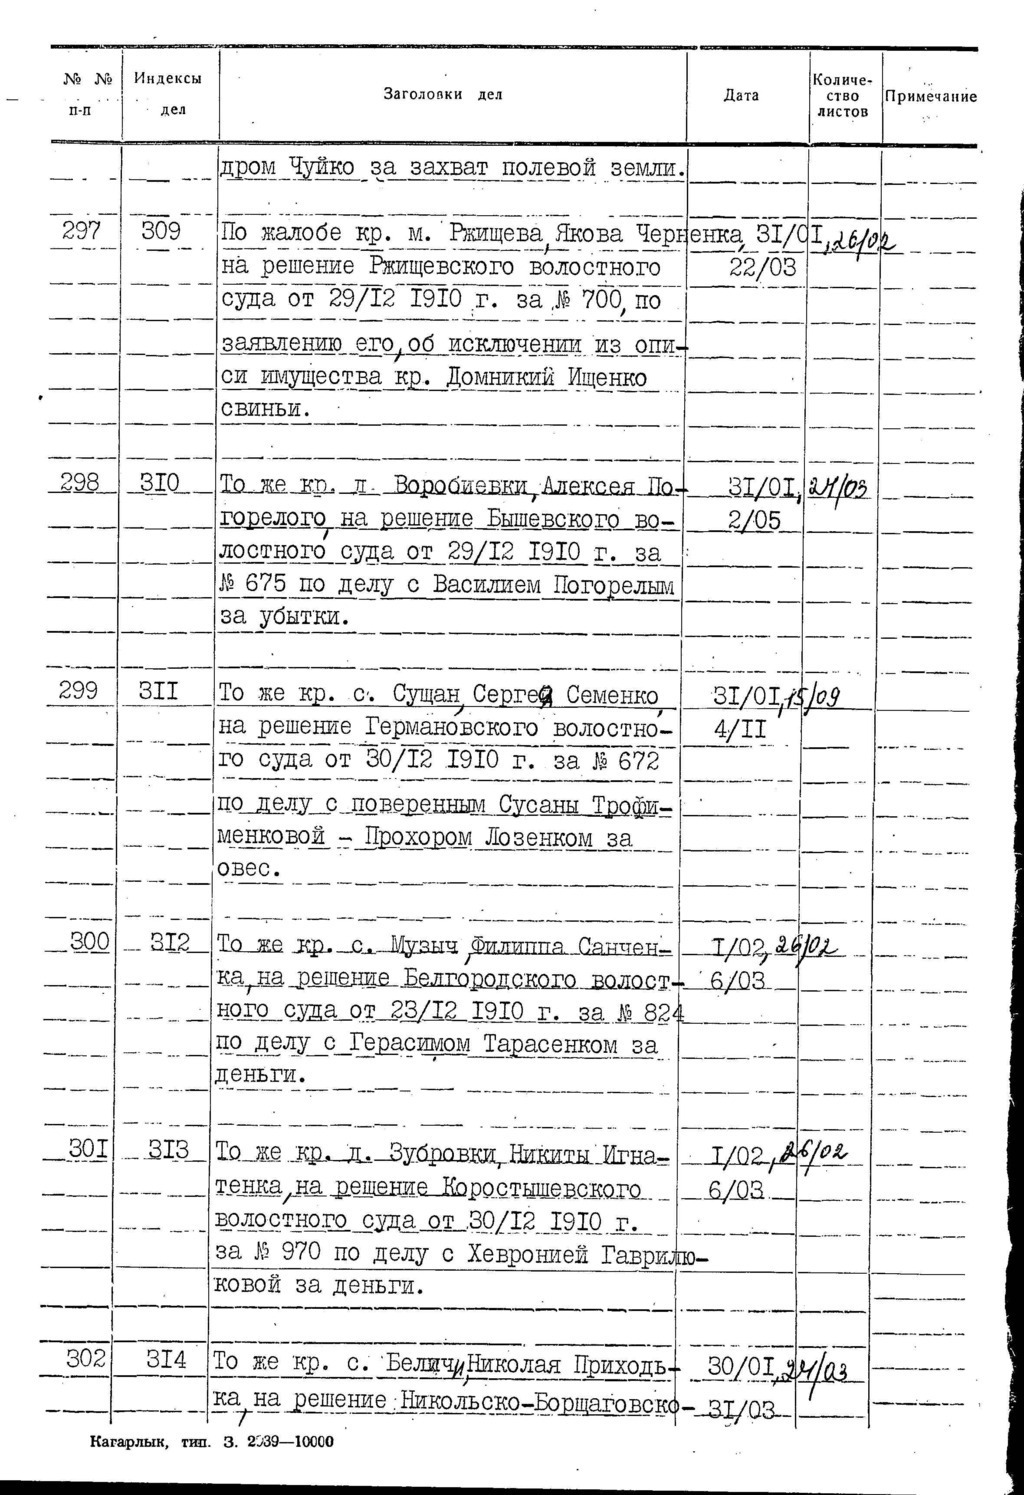 № № Индексы Заголовки дел Дата Количе- Примечание
п-п дел ство
листов
дром Чуйко за захват полевой земли.
297 309 По жалобе кр. м. Ржищева, Якова Черненка, 31/01, 26/02
на решение Ржищевского волостного 22/03
суда от 29/12 1910 г. за № 700, по
заявлению его, об исключении из опи-
си имущества кр. Домникий Ищенко
свиньи.
298 310 То же кр. д. Воробиевки, Алексея По- 31/01, 24/03
горелого, на решение Бышевского во- 2/05
лостного суда от 29/12 1910 г. за
№ 675 по делу с Василием Погорелым
за убытки.
299 311 То же кр. с. Сущан, Сергея Семенко, 31/01, 15/09
на решение Германовского волостно- 4/11
го суда от 30/12 1910 г. за № 672
по делу с поверенным Сусаны Трофи-
менковой - Прохором Лозенком за
овес.
300 312 То же кр. с. Музыч, Филиппа Санчен- 1/02, 26/02
ка, на решение Белгородского волост- 6/03
ного суда от 23/12 1910 г. за № 824
по делу с Герасимом Тарасенком за
деньги.
301 313 То же кр. д. Зубровки, Никиты Игна- 1/02, 26/02
тенка, на решение Коростышевского 6/03
волостного суда от 30/12 1910 г.
за № 970 по делу с Хевронией Гаврилю-
ковой за деньги.
302 314 То же кр. с. Беличи, Николая Приходь- 30/01, 24/03
ка, на решение Никольско-Борщаговско- 31/03
Кагарлык, тип. З. 2939—10000